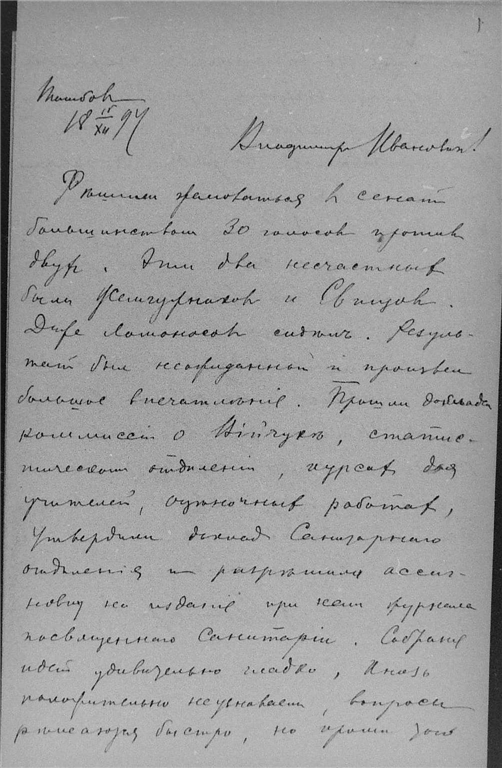 1
Тамбов
18 15/XII 97
Владимир Иванович!
Решили жаловаться в сенат
большинством 30 голосов против
двух. Эти два несчастных
были и Свищов.
Даже Ломоносов сидел. Резуль-
тат был неожиданный и произвел
большое впечатленіе. Прошли доклады
коммиссіи о , статис-
тическом отделеніи, курсах для
учителей, оценочных работах,
утвердили доклад Санитарнаго
отделенія и разрешили ассиг-
новку на изданіе при нем журнала
посвященнаго Санитаріи. Собраніе
идет удивительно гладко, Князь
положительно неузнаваем, вопросы
решаются быстро, но кроме того